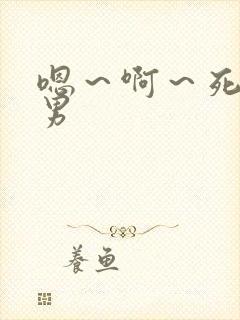 嗯～啊～死
男
養魚